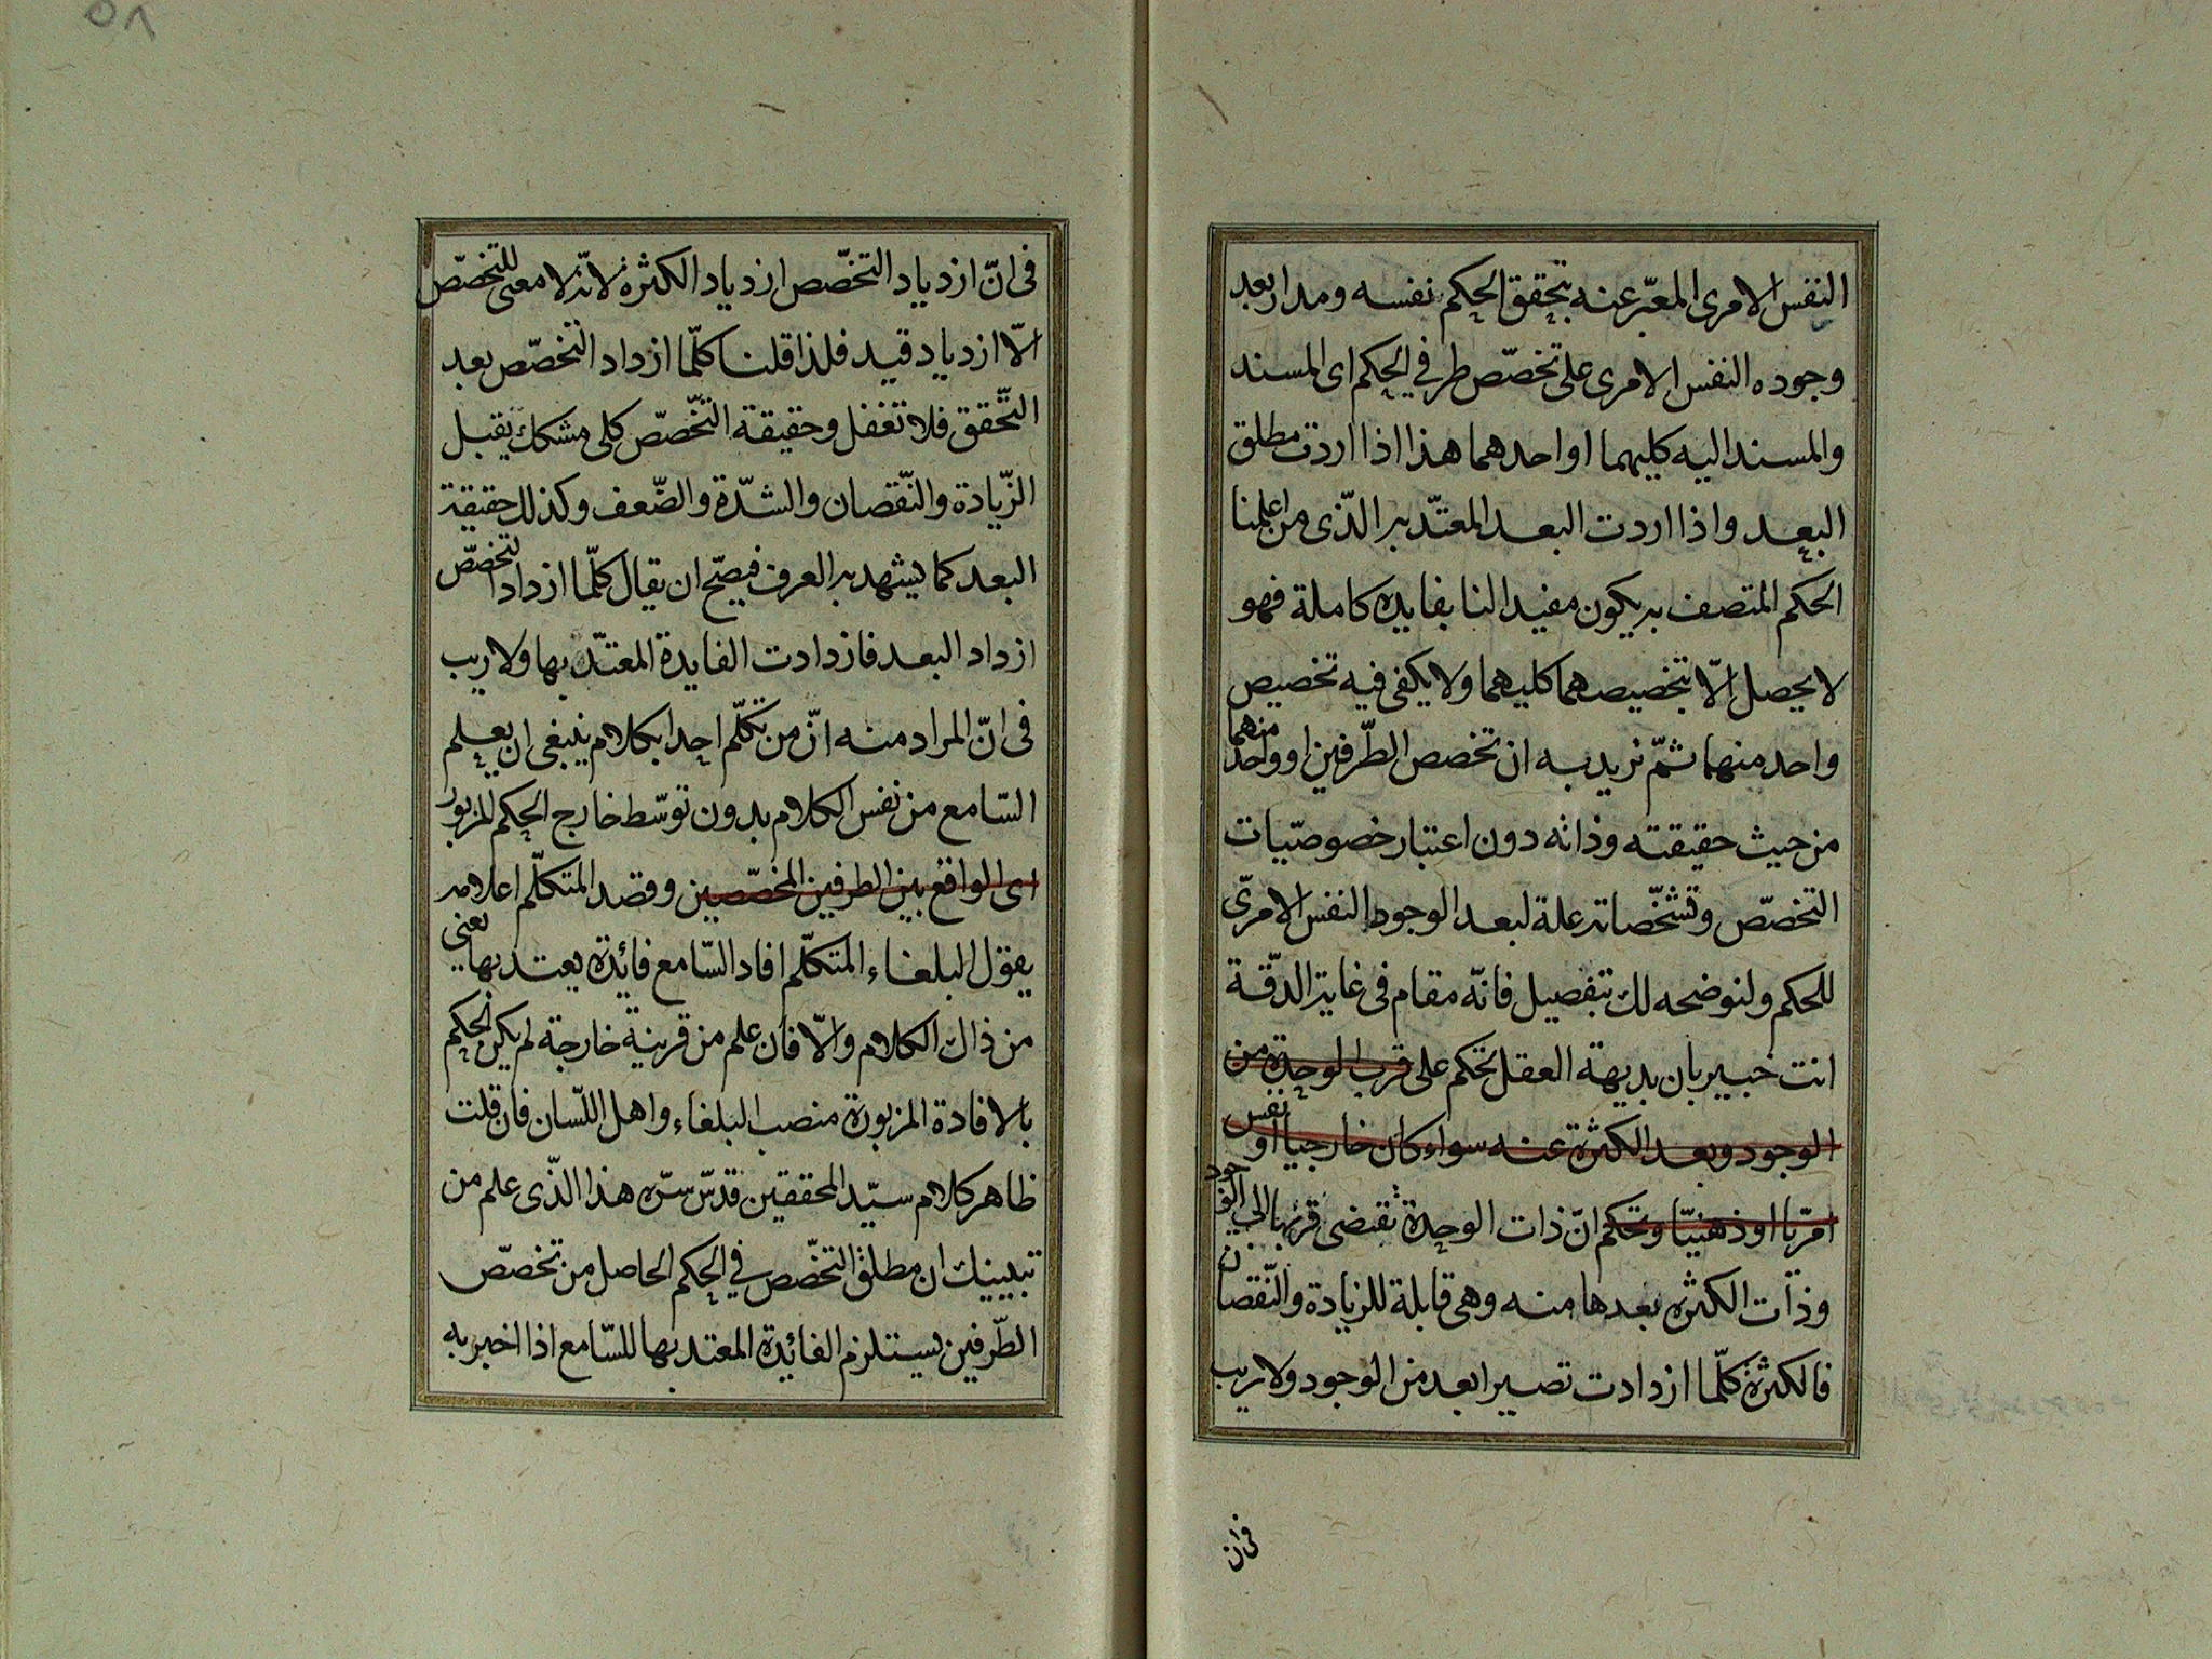 النفس الامرى المعبّر عنه بتحقق الحكم نفسه ومدار بعد
وجوده النفس الامرى على تخصّص طرفي الحكم اى المسند
والمسند اليه كليهما او احدهما هذا اذا اردت مطلق
البعد واذا اردت البعد المعتدّ به الذّى من اعلمنا
الحكم المتصف به يكون مفيد النا بفايده كاملة فهو
لا يحصل الّا بتخصيصهما كليهما ولا يكفى فيه تخصيص
واحد منهما ثمّ نريد به ان تخصص الطّرفين او واحد منهما
من حيث حقيقته وذاته دون اعتبار خصوصيّات
التخصّص وتشخّصاته علة لبعد الوجود النفس الامرىّ
للحكم ولنوضحه لك بتفصيل فانّه مقام فى غاية الدّقة
انت خبير بان بديهة العقل تحكم على قرب الوحدة من
الوجود وبعد الكثرة عنه سواء كان خارجيا او نفس
امريّا او ذهنيّا وتحكم انّ ذات الوحدة تقتضى قربها الى الوجود
وذات الكثره بعدها منه وهى قابلة للزيادة والنّقصان
فالكثرة كلّما ازدادت تصير ابعد من الوجود ولا ريب
فى ان
٥٨
فى انّ ازدياد التخصّص ازدياد الكثره لانّه لا معنى للتخصّص
الّا ازدياد قيد فلذا قلنا كلّما ازداد التخصّص بعد
التّحقق فلا تغفل وحقيقة التّخصّص كلى مشكك يقبل
الزّيادة والنّقصان والشدّة والضّعف وكذلك حقيقة
البعد كما يشهد به العرف فيصحّ ان يقال كلّما ازداد التخصّص
ازداد البعد فازدادت الفايدة المعتدّ بها ولا ريب
فى انّ المراد منه انّ من تكلّم احدا بكلام ينبغى ان يعلم
السّامع من نفس الكلام بدون توسّط خارج الحكم المزبور
اى الواقع بين الطرفين المخصّصين وقصد المتكلّم اعلامه
يقول البلغاء المتكلّم افاد السّامع فائدة يعتد بها يعنى
من ذاك الكلام والّا فان علم من قرينة خارجة لم يكن الحكم
بالافادة المزبورة منصب البلغاء واهل اللّسان فان قلت
ظاهر كلام سيّد المحققين قدّس سرّه هذا الذّى علم من
تبيينك ان مطلق التخصّص في الحكم الحاصل من تخصّص
الطّرفين يستلزم الفائدة المعتد بها للسّامع اذا اخبر به